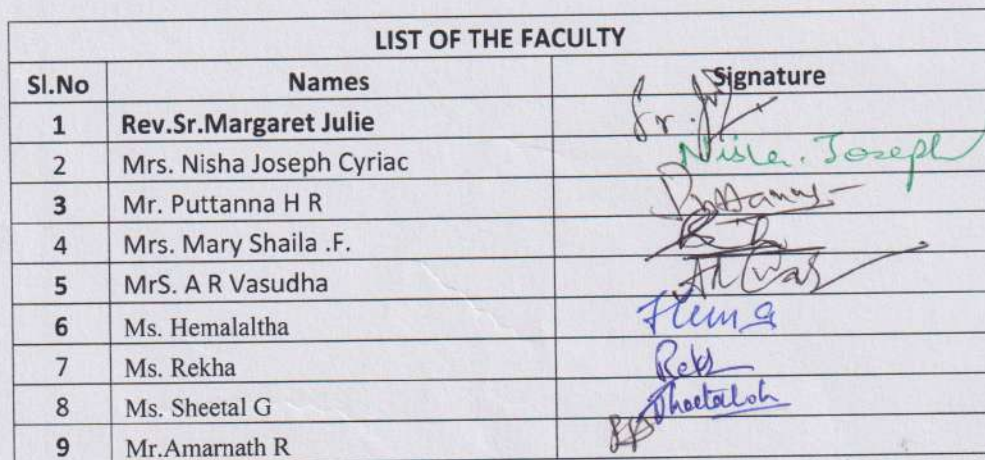 LIST OF THE FACULTY
Sl.No Names Signature
1 Rev.Sr.Margaret Julie Sr.
2 Mrs. Nisha Joseph Cyriac Nisha. Joseph
3 Mr. Puttanna H R Puttanna
4 Mrs. Mary Shaila .F.
5 MrS. A R Vasudha
6 Ms. Hemalaltha Hema
7 Ms. Rekha
8 Ms. Sheetal G
9 Mr.Amarnath R